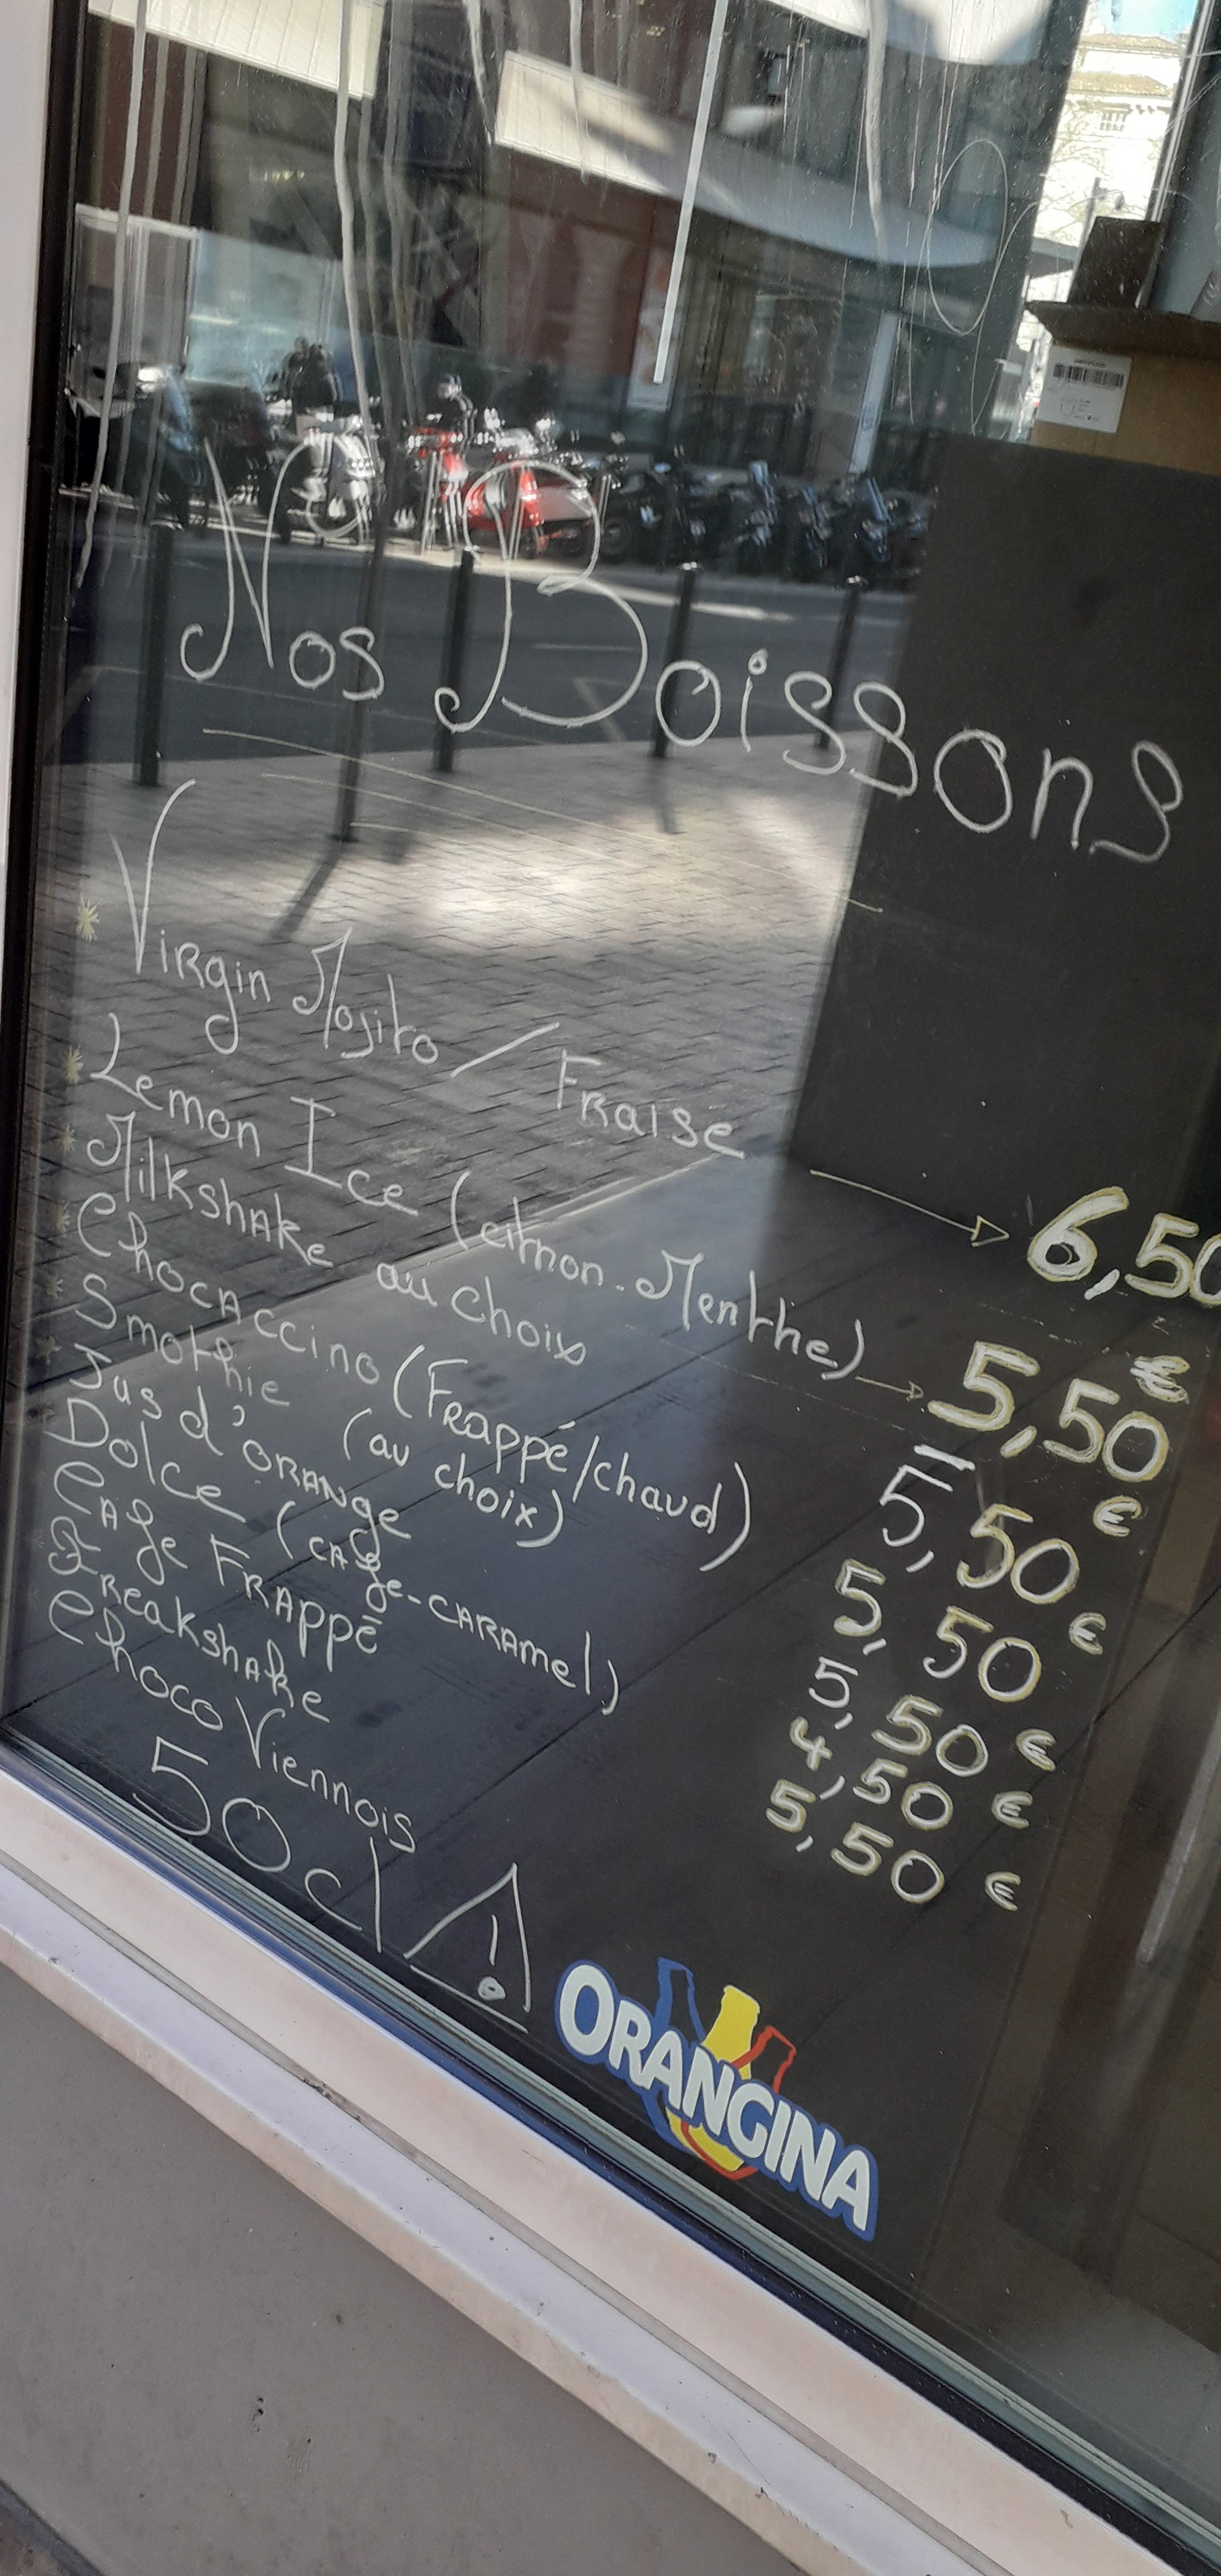 Nos Boissons
Virgin Mojito / Fraise → 6,50 €
Lemon Ice (citron-Menthe) → 5,50 €
Milkshake au choix 5,50 €
Chocaccino (Frappé/chaud) 5,50 €
Smothie (au choix) 5,50 €
Jus d'orange 4,50 €
Dolce (café-caramel) 5,50 €
Café Frappé
Freakshake
Choco Viennois
50cl
!
ORANGINA